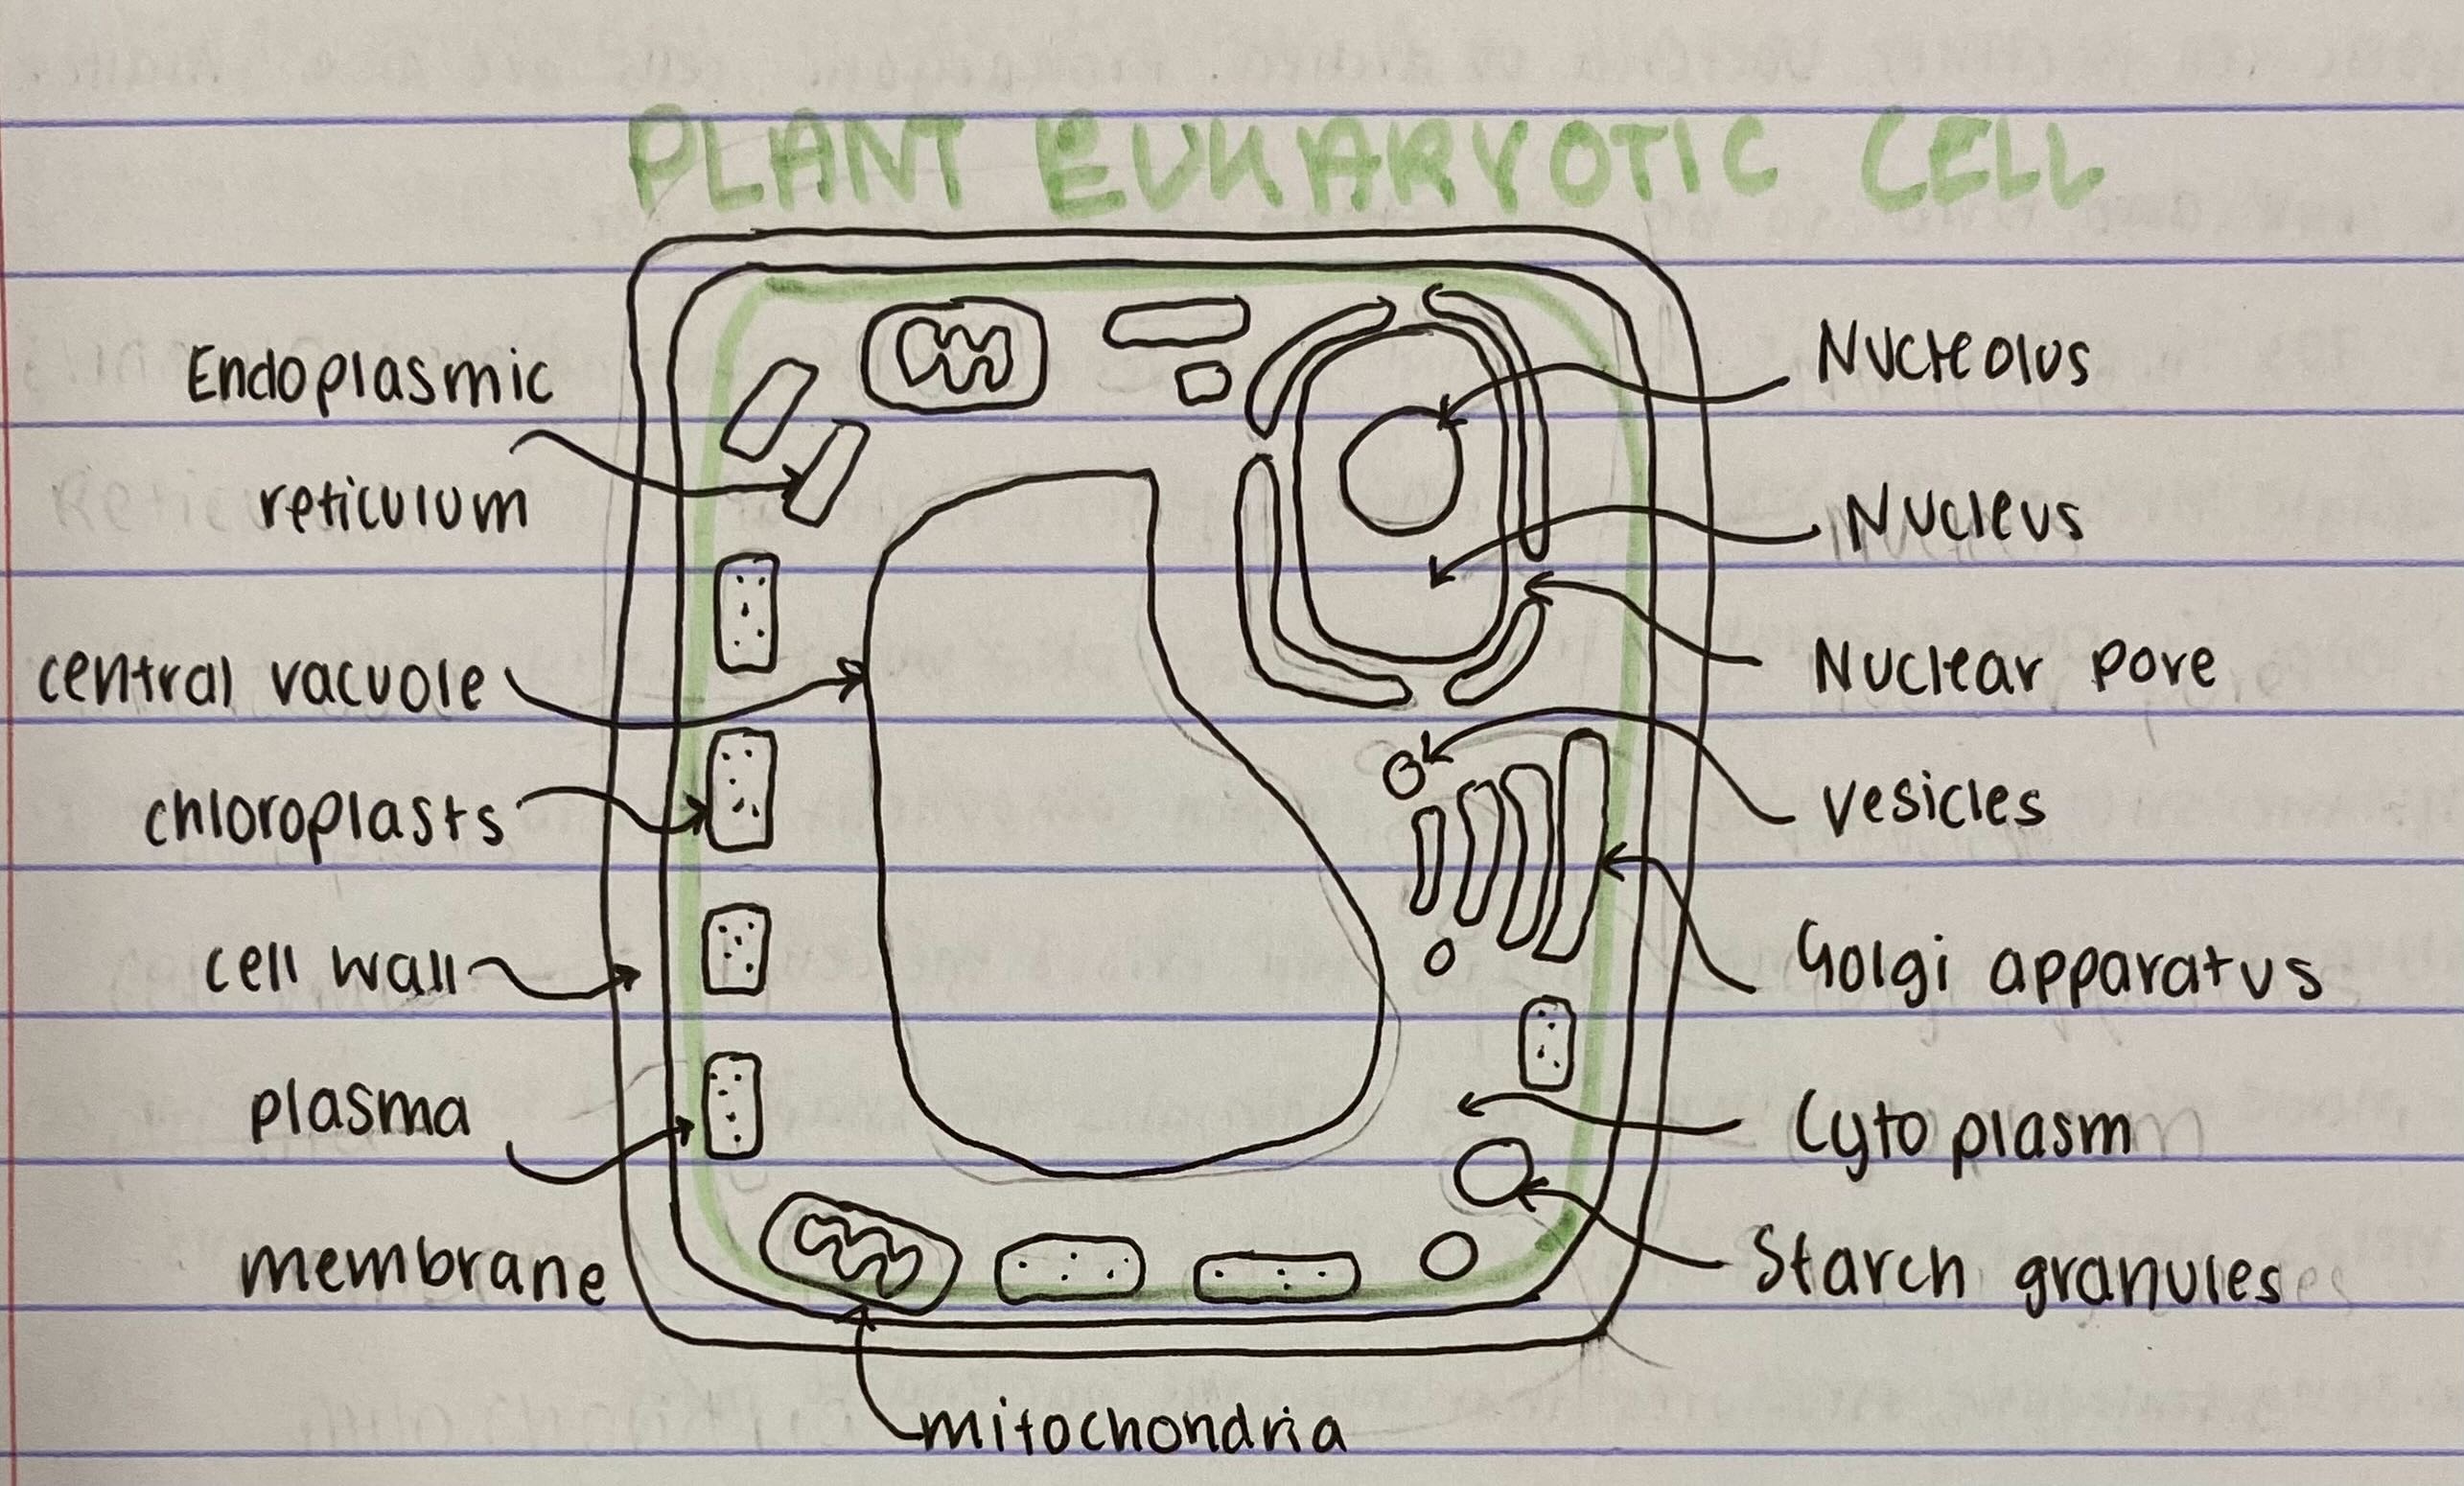 PLANT EUKARYOTIC CELL
Endoplasmic
reticulum
central vacuole
chloroplasts
cell wall
plasma
membrane
mitochondria
Nucleolus
Nucleus
Nuclear pore
vesicles
Golgi apparatus
Cytoplasm
Starch granules